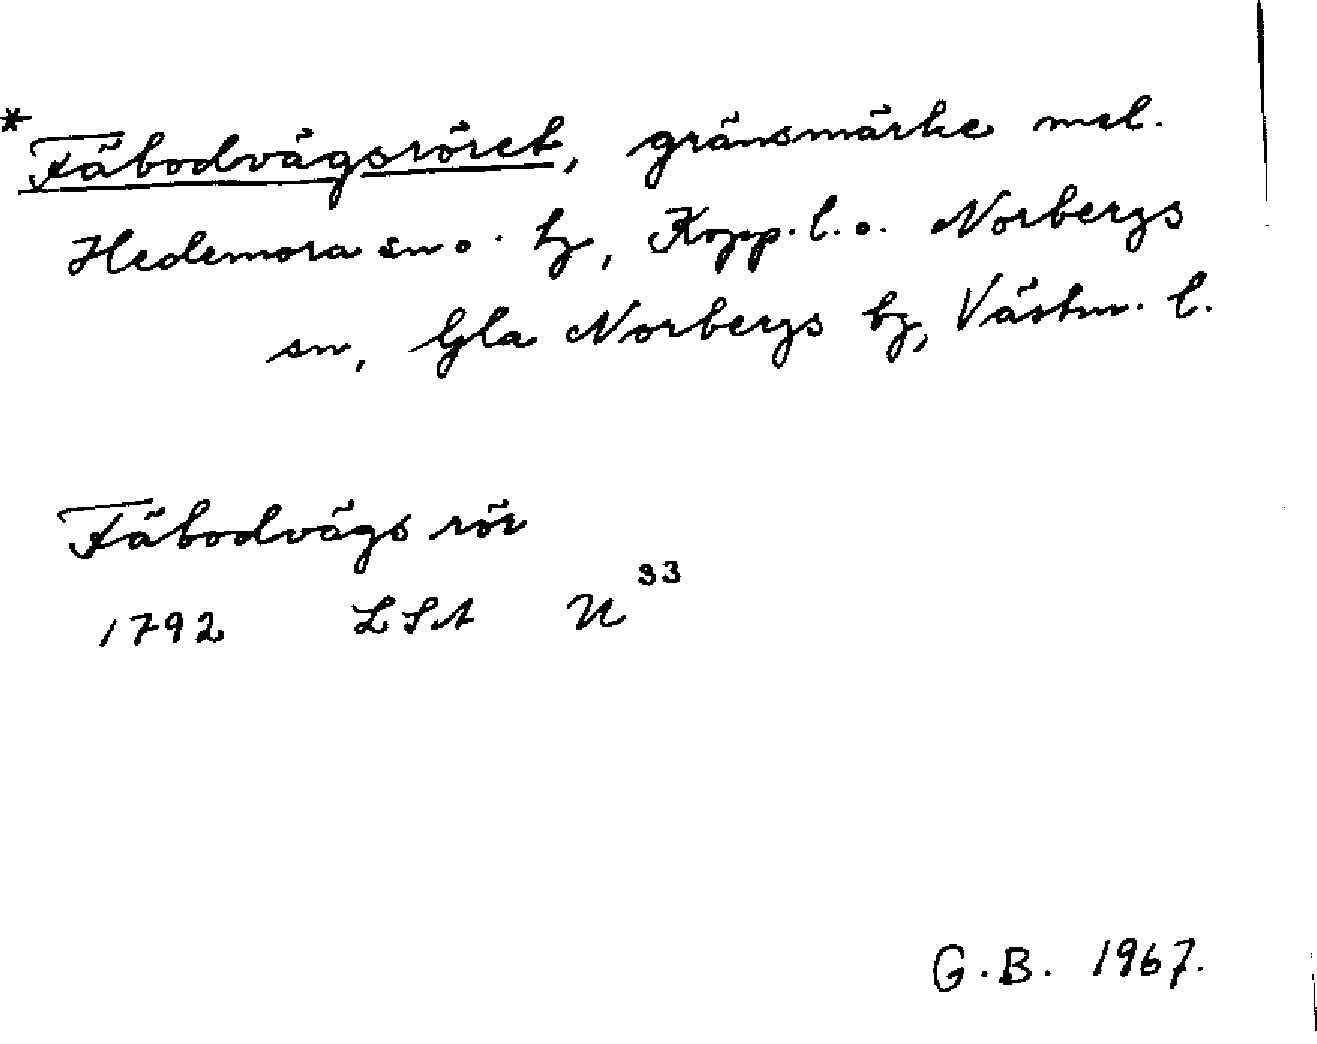 *Fäbodvägsröret, gränsmärke mel.
Hedemora sn o. hg, Kopp. l. o. Norbergs
sn, Gla Norbergs bg, Västm. l.
Fäbodvägs rör
1792 LSA U³³
G.B. 1967.